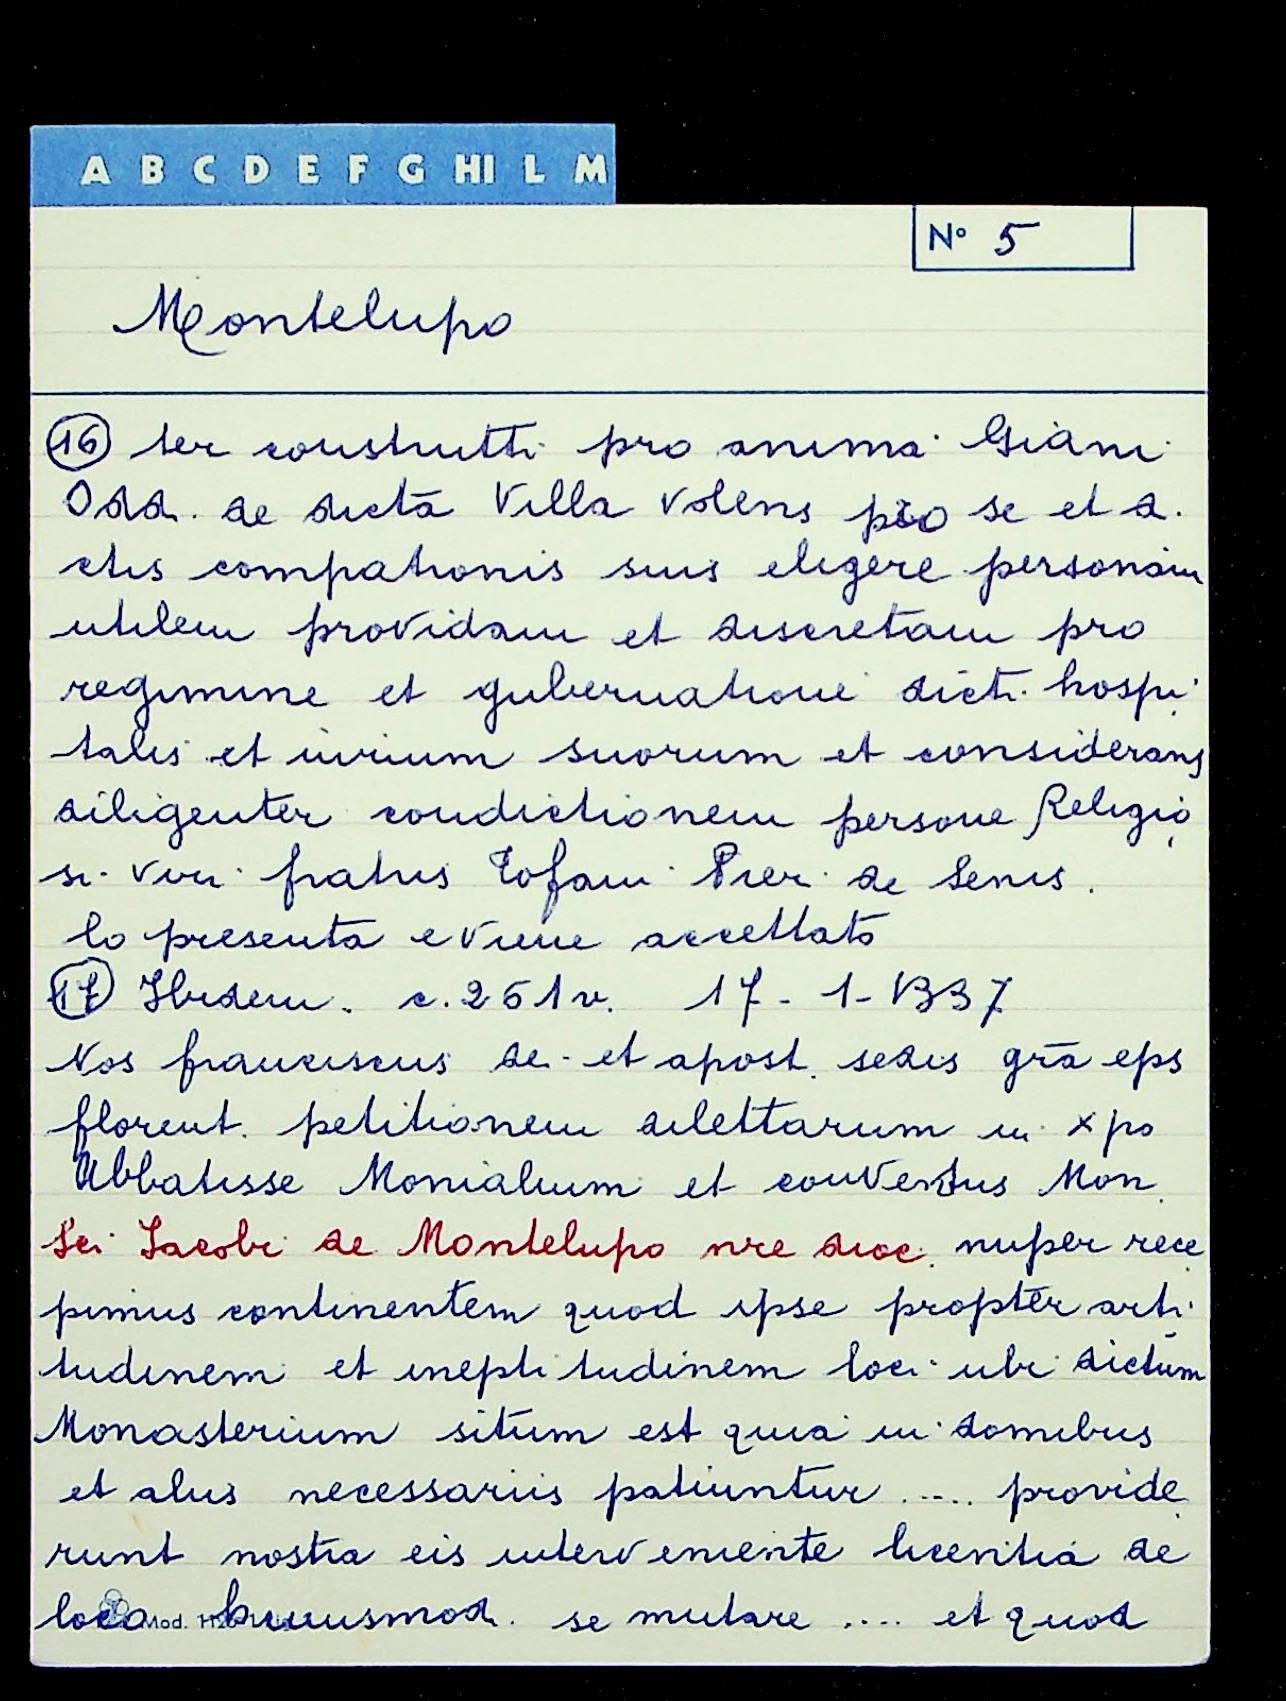 A B C D E F G HI L M
N° 5
Montelupo
16 ter construtti pro anima Giani
Odd. de dicta Villa volens pro se et d.
ctis compatronis suis eligere personam
utilem providam et discretam pro
regimine et gubernatione dicti hospi
talis et iurium suorum et considerans
diligenter condictionem persone Religio
si viri fratris Tofani Pieri de Senis.
lo presenta e viene accettato
17 Ibidem. c. 261v. 17-1-1337
Nos franciscus dei et apost. sedis grā eps
florent. petitionem dilettarum in xpo
Abbatisse Monialium et conventus Mon.
Sci Iacobi de Montelupo nre dioc. nuper rece
pimus continentem quod ipse propter arti
tudinem et ineptitudinem loci ubi dictum
Monasterium situm est quia in domibus
et aliis necessariis patiuntur ..... provide
runt nostra eis interveniente licentia de
loco huiusmod. se mutare .... et quod
Mod.